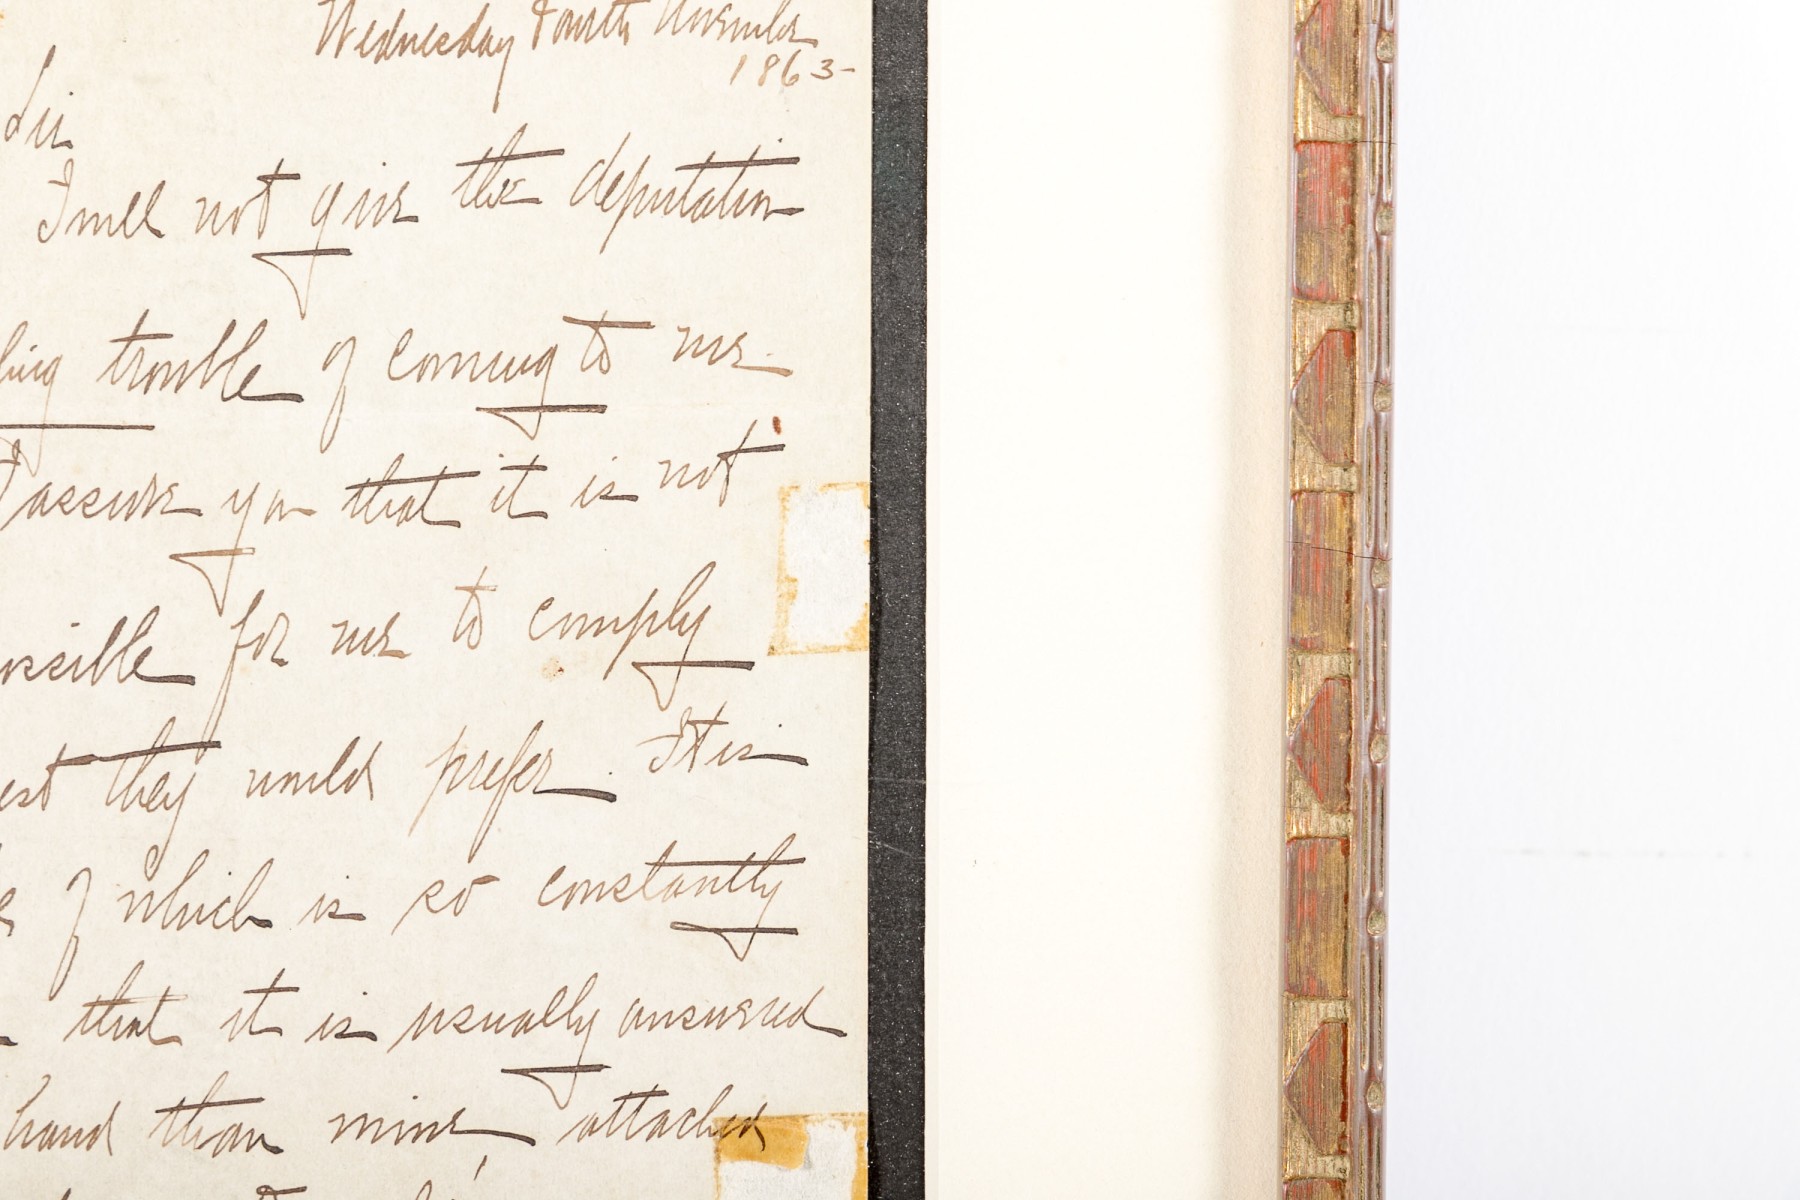 Wednesday Fourth November
1863-
Sir
I will not give the deputation
trouble of coming to me.
I assure you that it is not
ossible for me to comply
est they would prefer. It is
of which is so constantly
that it is usually answered
hand than mine, attached